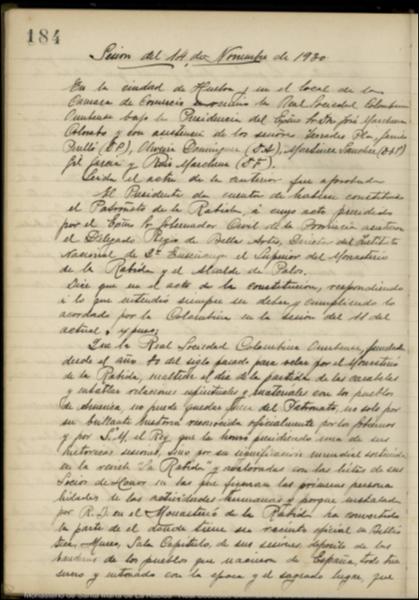 184
Sesion del 14 de Noviembre de 1930
En la ciudad de Huelva y en el local de la
Camara de Comercio se reunio la Real Sociedad Colombina
Onubense bajo la Presidencia del Excmo Sr Dn José Marchena
Colombo y con asistencia de los señores Terrades Pla, Garrido
Perelló (D. P.), Oliveira Dominguez (D. A.), Martinez Sanchez
Gil Garcia y Ruiz Marchena (D. F.).
Leida el acta de la anterior fue aprobada.
El Presidente da cuenta de haberse constituido
el Patronato de la Rabida, a cuyo acto presidido
por el Excmo Sr Gobernador Civil de la Provincia asistieron
el Delegado Regio de Bellas Artes, Director del Instituto
Nacional de 2ª Enseñanza el Superior del Monasterio
de la Rabida y el Alcalde de Palos.
Dice que en el acto de la constitucion, respondiendo
a lo que entendió siempre un deber y cumpliendo lo
acordado por la Colombina en la sesion del 11 del
actual, expuso:
Que la Real Sociedad Colombina Onubense, fundada
desde el año 80 del siglo pasado para velar por el Monasterio
de la Rabida, enaltecer el dia de la partida de las carabelas
y entablar relaciones espirituales y materiales con los pueblos
de America, no puede quedar fuera del Patronato, no solo por
su brillante historia reconocida oficialmente por los gobiernos
y por S. M. el Rey que la honró presidiendo una de sus
historicas sesiones, sino por su significacion mundial sostenida
en la revista "La Rabida" y avaloradas con las listas de sus
Socios de Honor en las que figuran las primeras persona
lidades de las actividades humanas y porque instalada
por R. D. en el Monasterio de la Rabida ha convertido
la parte de el donde tiene su recinto oficial en Biblio
teca, Museo, Sala Capitular, de sus sesiones, deposito de las
banderas de los pueblos que nacieron de España, todo tan
severo y entonado con la epoca y el sagrado lugar, que